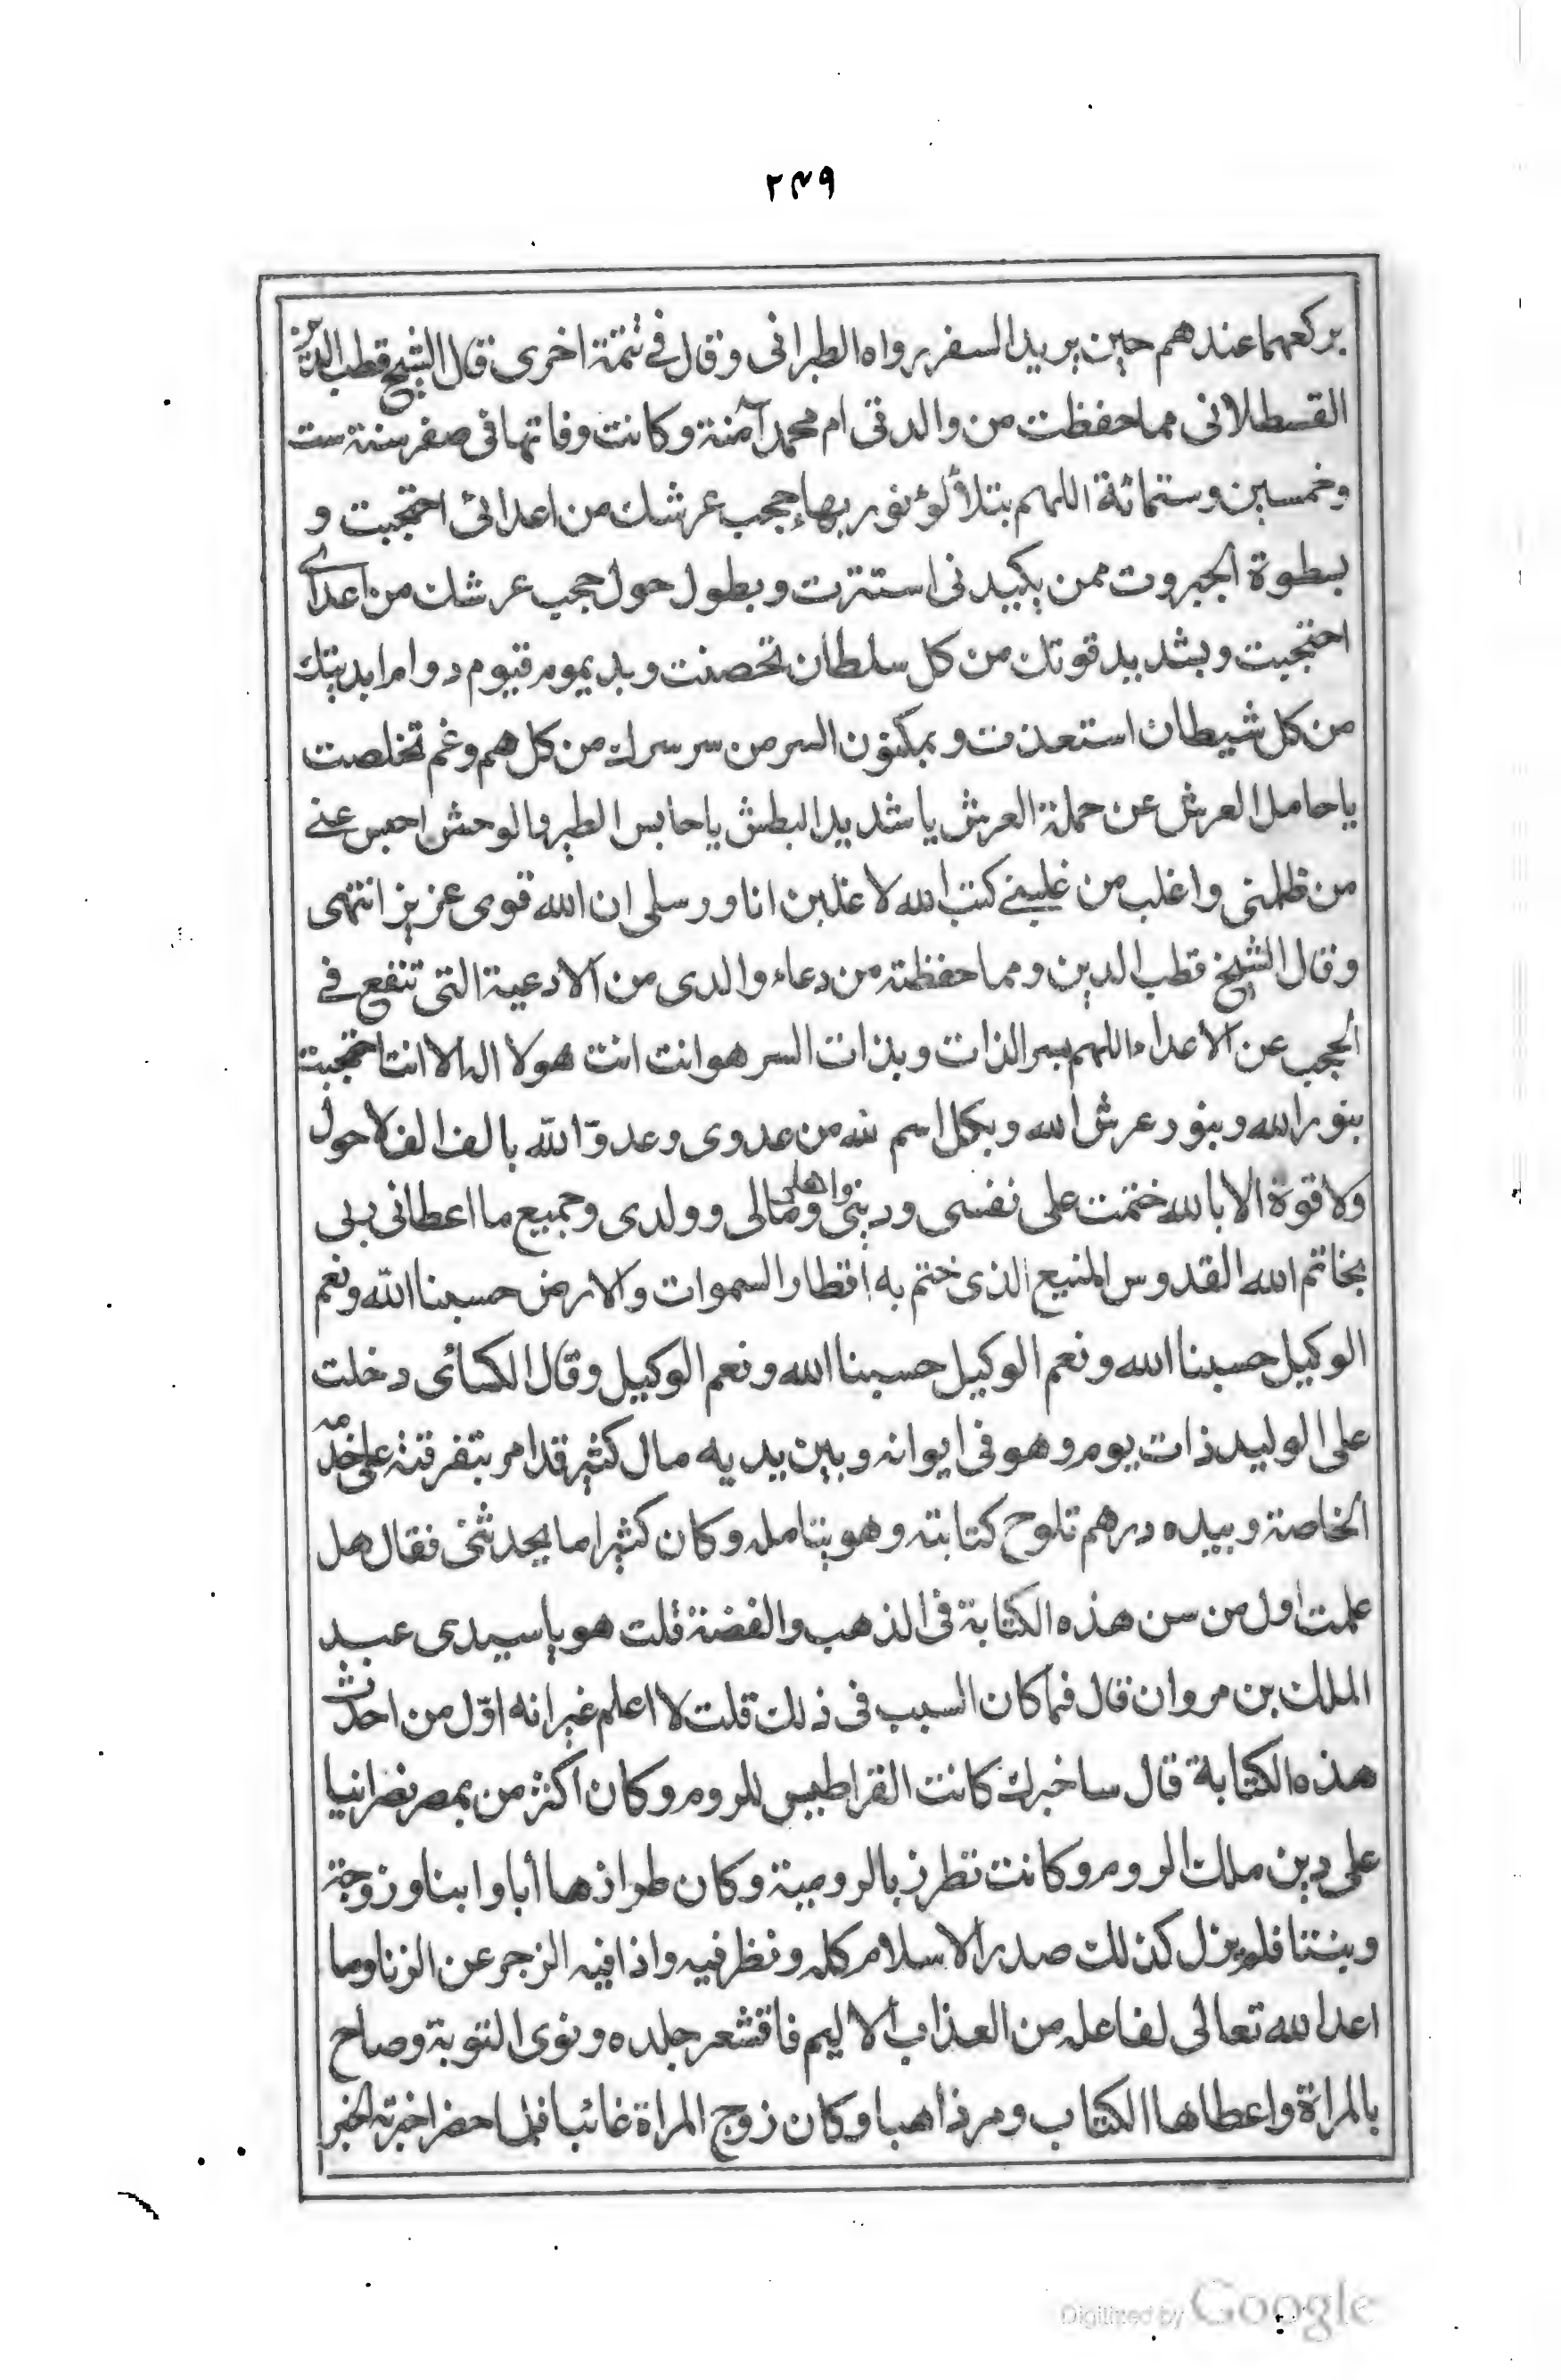 ٢٣٩
يركعهما عندهم حين يريد السفر رواه الطبرانى وقال فى تتمة اخرى قال الشيخ قطب الدين
القسطلانى مما حفظت من والدتى ام محمد آمنة وكانت وفاتها فى صفر سنة ست
وخمسين وستمائة اللهم بتلألؤ نور بهاء حجب عرشك من اعدائى احتجبت و
بسطوة الجبروت ممن يكيدنى استترت وبطول حول حجب عرشك من اعداى
احتجبت وبشديد قوتك من كل سلطان تحصنت وبديموم قيوم دوام ابديتك
من كل شيطان استعذت وبمكنون السر من سر سرك من كل هم وغم تخلصت
يا حامل العرش عن حملة العرش يا شديد البطش يا حابس الطير والوحش احبس عنى
من ظلمنى واغلب من غلبنى كتب الله لاغلبن انا ورسلى ان الله قوى عزيز انتهى
وقال الشيخ قطب الدين ومما حفظته من دعاء والدى من الادعية التى تنفع فى
الحجب عن الاعداء اللهم بسر الذات وبذات السر هو انت انت هو لا اله الا انت احتجبت
بنور الله وبنور عرش الله وبكل اسم لله من عدوى وعدوّ الله بالف الف لا حول
ولا قوة الا بالله ختمت على نفسى ودينى واهلى ومالى وولدى وجميع ما اعطانى ربى
بخاتم الله القدوس المنيع الذى ختم به اقطار السموات والارض حسبنا الله ونعم
الوكيل حسبنا الله ونعم الوكيل حسبنا الله ونعم الوكيل وقال الكسائى دخلت
على الوليد ذات يوم وهو فى ايوانه وبين يديه مال كثير قد امر بتفرقته على خدمه
الخاصة وبيده درهم تلوح كتابته وهو يتامله وكان كثيرا ما يحدثنى فقال هل
علمت اول من سن هذه الكتابة فى الذهب والفضة قلت هو يا سيدى عبد
الملك بن مروان قال فما كان السبب فى ذلك قلت لا اعلم غير انه اوّل من احدث
هذه الكتابة قال ساخبرك كانت القراطيس للروم وكان اكثر من بمصر نصرانيا
على دين ملك الروم وكانت تطرز بالرومية وكان طرازها أبا وابنا وزوجة
وبنتا فلم يزل كذلك صدر الاسلام كله ونظر فيه واذا فيه الزجر عن الزنا وما
اعد الله تعالى لفاعله من العذاب الاليم فاقشعر جلده ونوى التوبة وصاح
بالمراة واعطاها الكتاب ومر ذاهبا وكان زوج المراة غائبا فلما حضر اخبرته الخبر
Digitized by Google